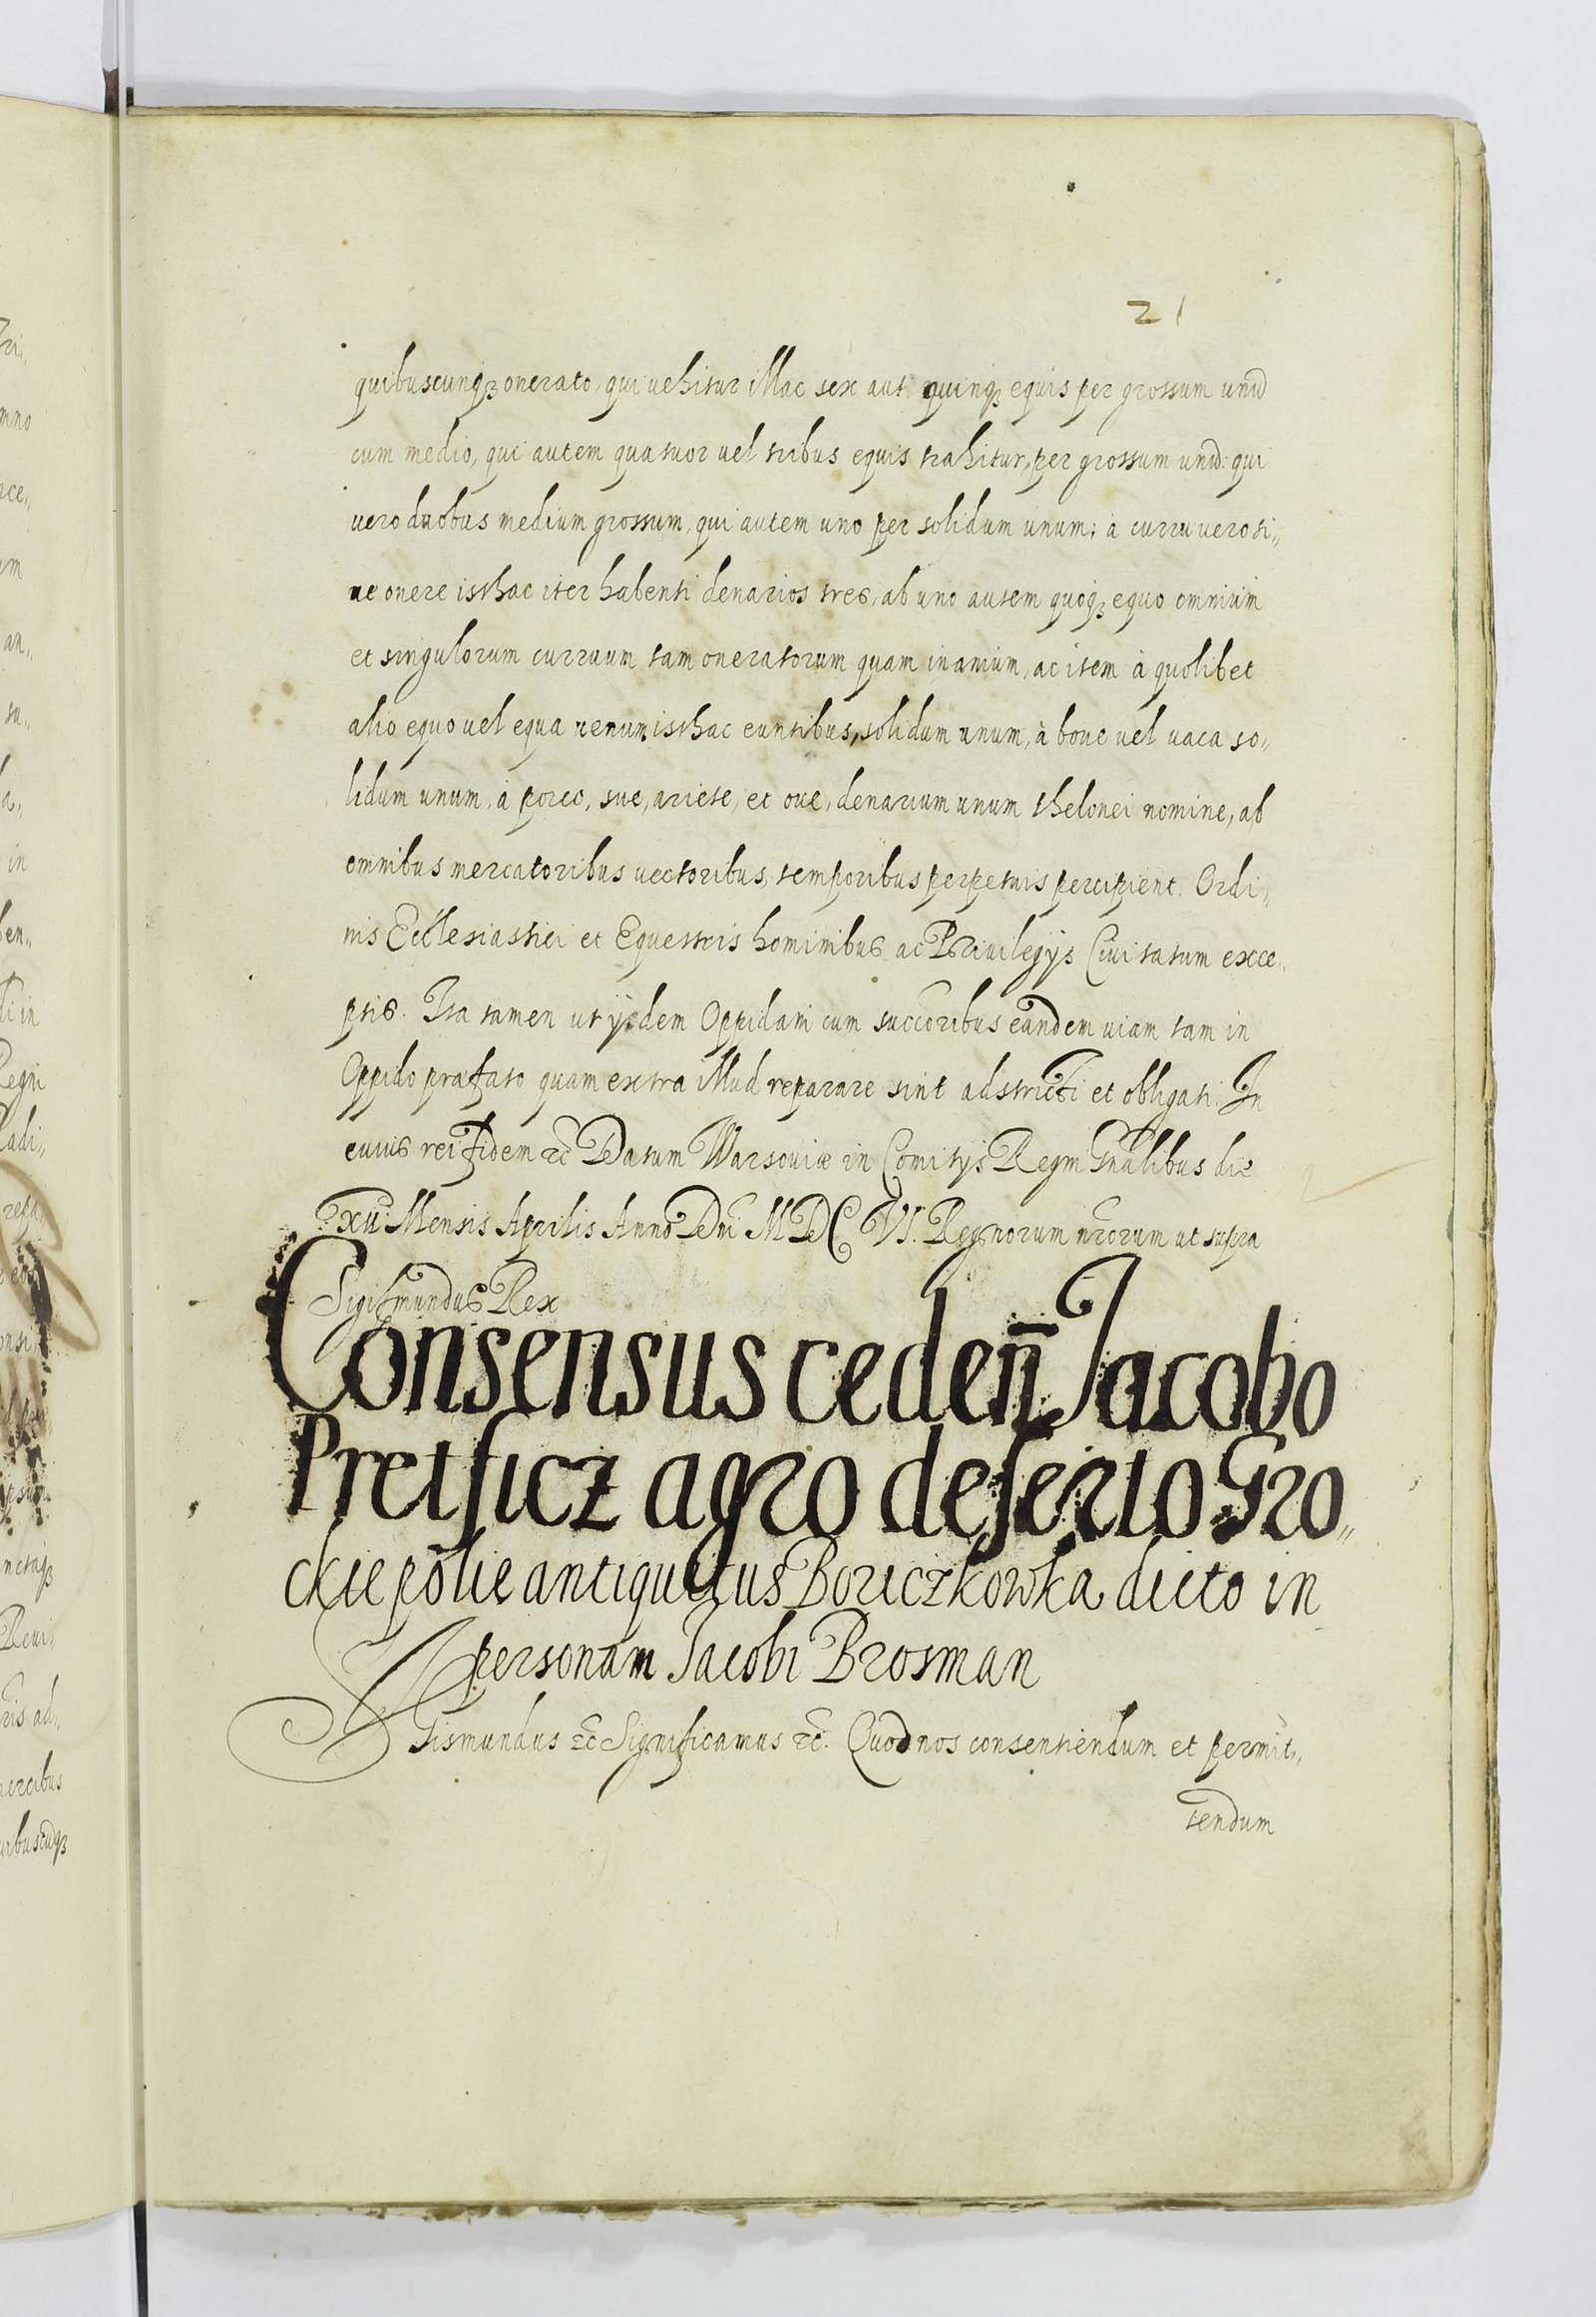 21
quibuscunqꝫ onerato, qui uehitur illac sex aut quinqꝫ equis per grossum unū
cum medio, qui autem quatuor uel tribus equis trahitur, per grossum unū: qui
uero duobus medium grossum, qui autem uno per solidum unum; à curru uero si„
ne onere isthac iter habenti denarios tres, ab uno autem quoqꝫ equo omnium
et singulorum curruum tam oneratorum quam inanium, ac item à quolibet
alio equo uel equa uenum isthac euntibus, solidum unum, à boue uel uaca so„
lidum unum, à porco, sue, ariete, et oue, denarium unum thelonei nomine, ab
omnibus mercatoribus uectoribus, temporibus perpetuis percipient. Ordi„
nis Ecclesiastici et Equestris hominibus ac Priuilegijs Ciuitatum exce„
ptis. Ita tamen ut ijsdem Oppidani cum succoribus eandem uiam tam in
Oppido præfato quam extra illud reparare sint adstricti et obligati. In
cuius rei fidem ꝛc̄ Datum Warsouiæ in Comitijs Regni Gnalibus die
XII Mensis Aprilis Anno Dnī MDCVI. Regnorum nr̄orum ut supra
Sigismundus Rex
Consensus cedeñ Jacobo
Pretficz agro deserto Gro„
ckie põlie antiquitus Boriczkowka dicto in
personam Jacobi Brosman
Sigismundus ꝛc̄ Significamus ꝛc̄. Quod nos consentiendum et permit„
tendum